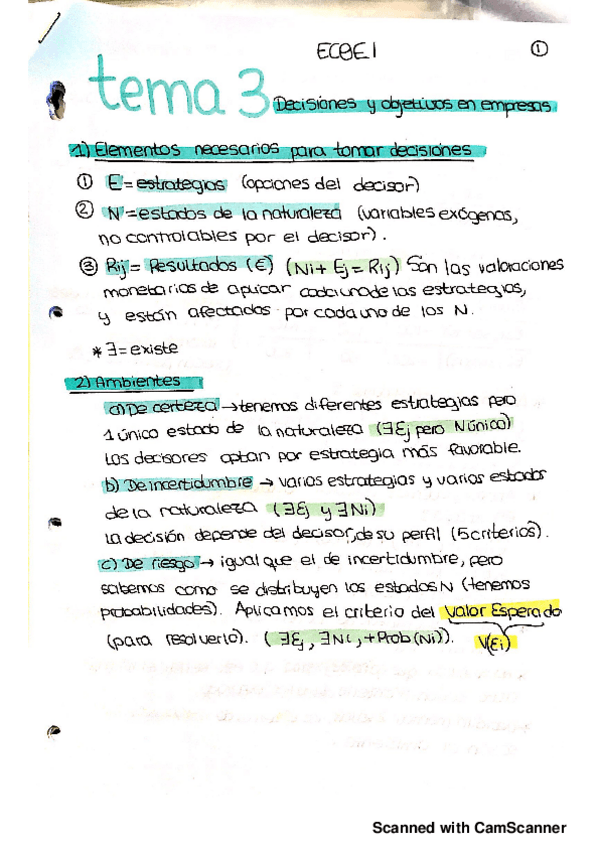 ECOE I ①
tema 3 Decisiones y objetivos en empresas
1) Elementos necesarios para tomar decisiones
① E = estrategias (opciones del decisor)
② N = estados de la naturaleza (variables exógenas,
no controlables por el decisor).
③ Rij = Resultados (€) (Ni + Ej = Rij) Son las valoraciones
monetarias de aplicar cada una de las estrategias,
y están afectados por cada uno de los N.
* ∃ = existe
2) Ambientes
a) De certeza → tenemos diferentes estrategias pero
1 único estado de la naturaleza (∃Ej pero N único)
Los decisores optan por estrategia más favorable.
b) De incertidumbre → varias estrategias y varios estados
de la naturaleza (∃Ej y ∃Ni)
La decisión depende del decisor, de su perfil (5 criterios).
c) De riesgo → igual que el de incertidumbre, pero
sabemos como se distribuyen los estados N (tenemos
probabilidades). Aplicamos el criterio del Valor Esperado
(para resolverlo). (∃Ej, ∃Ni, + Prob(Ni)). V(Ei)
Scanned with CamScanner